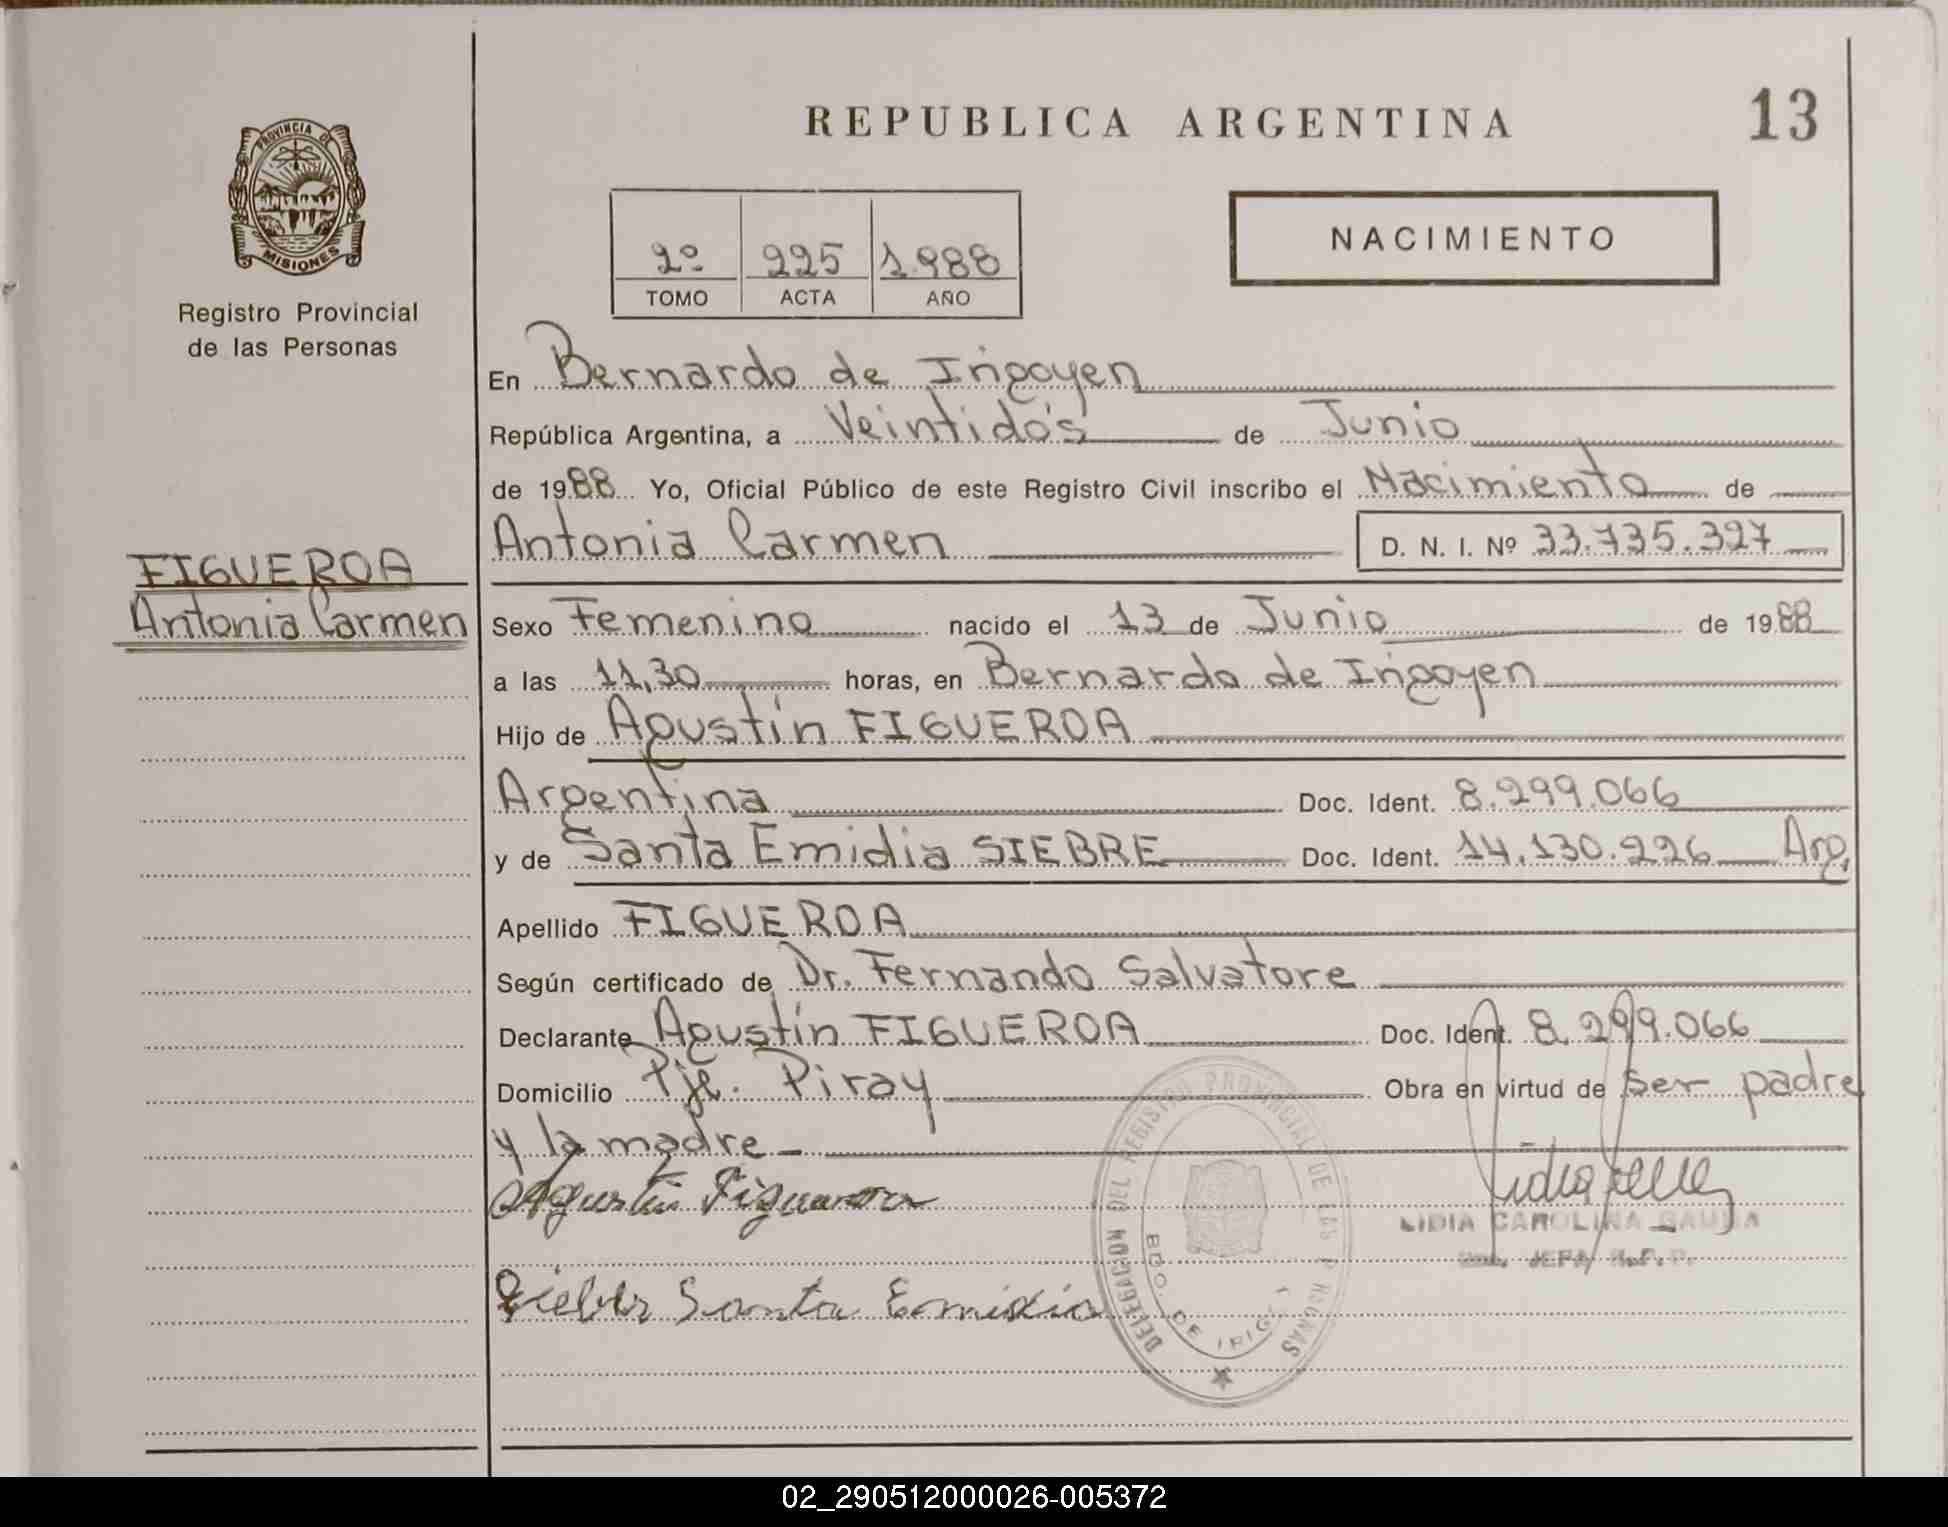 PROVINCIA DE
MISIONES
Registro Provincial
de las Personas
FIGUEROA
Antonia Carmen
REPUBLICA ARGENTINA
13
2º 225 1.988
TOMO ACTA AÑO
NACIMIENTO
En Bernardo de Irigoyen
República Argentina, a Veintidós de Junio
de 1988 Yo, Oficial Público de este Registro Civil inscribo el Nacimiento de
Antonia Carmen D. N. I. Nº 33.735.327
Sexo Femenino nacido el 13 de Junio de 1988
a las 11,30 horas, en Bernardo de Irigoyen
Hijo de Agustín FIGUEROA
Argentina Doc. Ident. 8.299.066
y de Santa Emidia SIEBRE Doc. Ident. 14.130.226 Arg.
Apellido FIGUEROA
Según certificado de Dr. Fernando Salvatore
Declarante Agustín FIGUEROA Doc. Ident. 8.299.066
Domicilio Pje. Piray Obra en virtud de ser padre
y la madre
Agustin Figueroa
LIDIA CAROLINA
JEFA R.P.P.
Santa Emidia
DELEGACION DEL REGISTRO PROVINCIAL DE LAS PERSONAS
BDO. DE IRIGOYEN
02_290512000026-005372